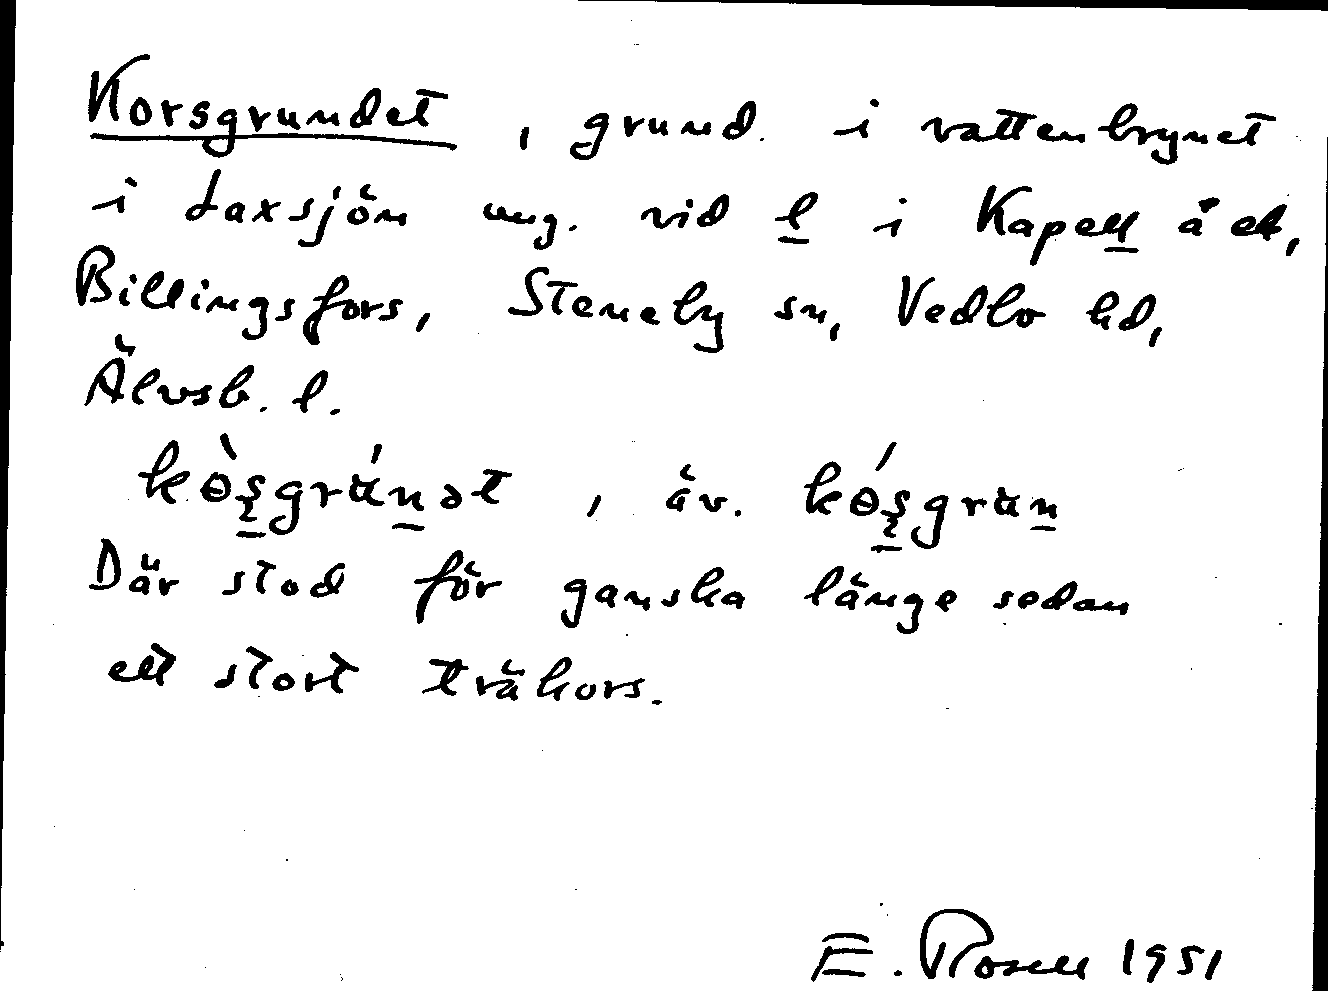 Korsgrundet, grund i vattenbrynet
i Laxsjön ung. vid l i Kapell å ek,
Billingsfors, Steneby sn, Vedbo hd,
Älvsb. l.
kòʂgrúnət, äv. kóʂgrun
Där stod för ganska länge sedan
ett stort träkors.
E. Rosell 1951